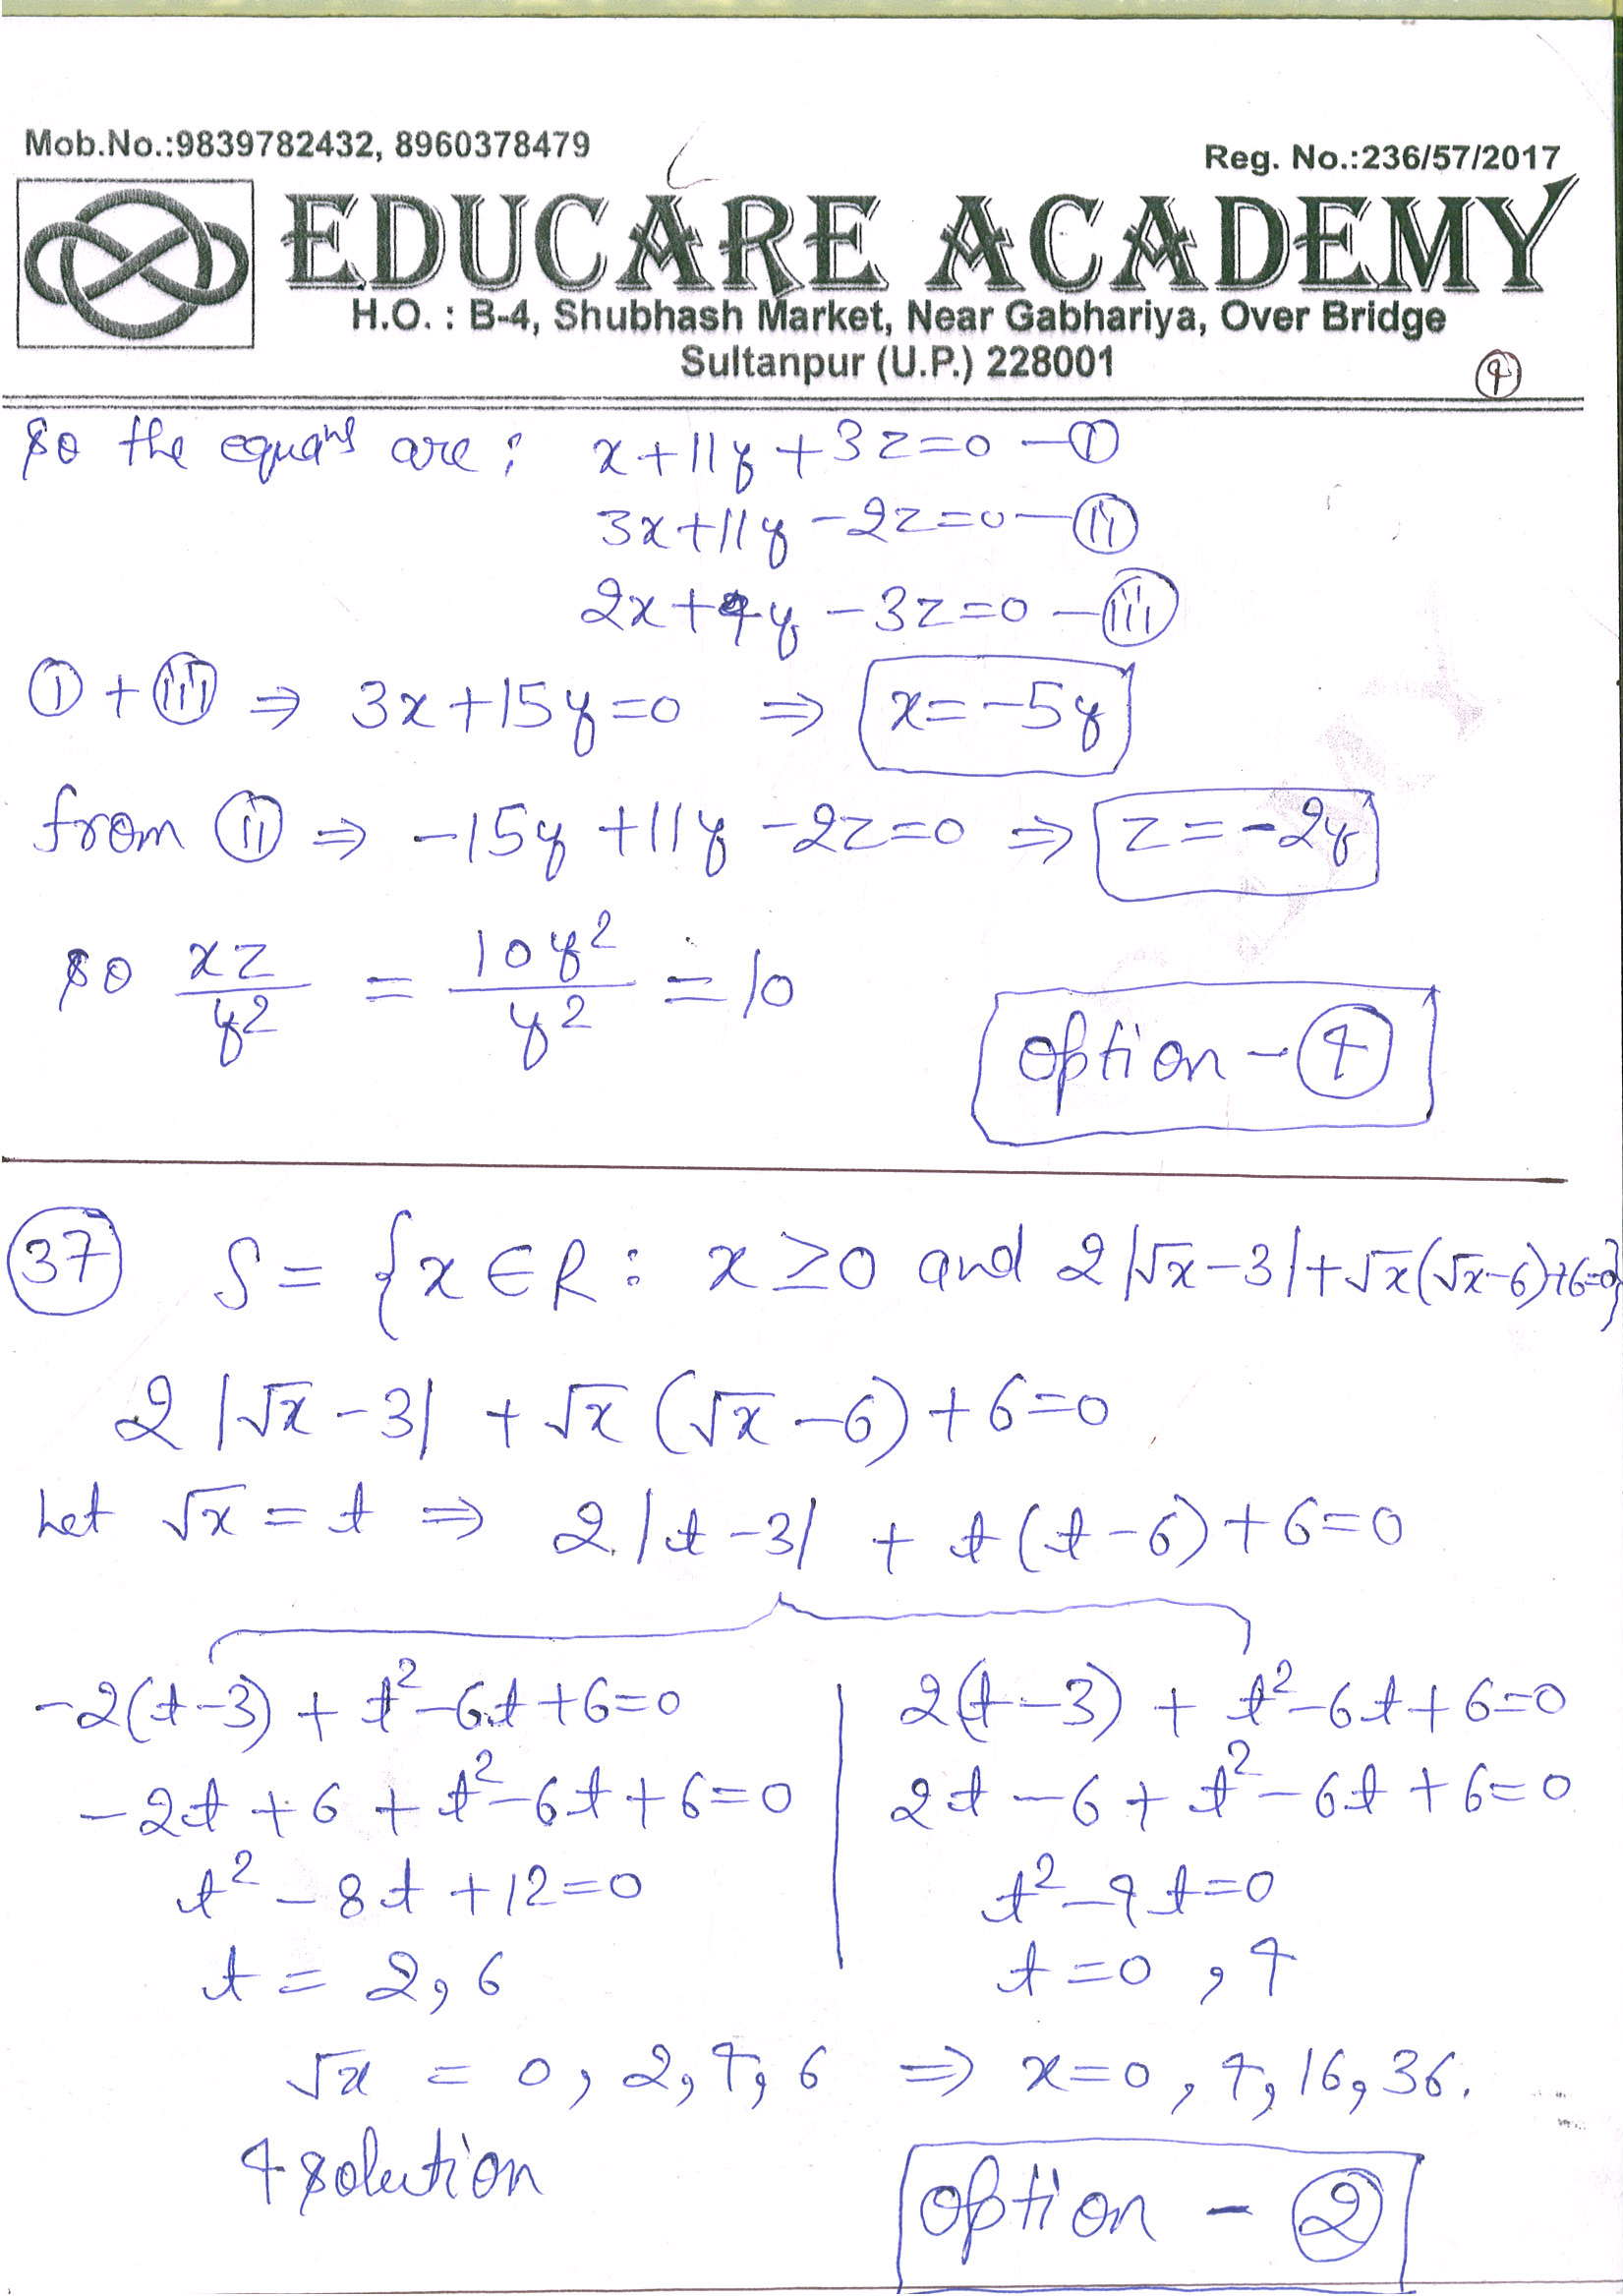 Mob.No.:9839782432, 8960378479
Reg. No.:236/57/2017
EDUCARE ACADEMY
H.O. : B-4, Shubhash Market, Near Gabhariya, Over Bridge
Sultanpur (U.P.) 228001
④
so the equa^ns are : x+11y+3z=0 —Ⓘ
3x+11y-2z=0 —ⓘⓘ
2x+4y-3z=0 —ⓘⓘⓘ
Ⓘ + ⓘⓘⓘ ⇒ 3x+15y=0 ⇒ x=-5y
from ⓘⓘ ⇒ -15y+11y-2z=0 ⇒ z=-2y
so xz/y² = 10y²/y² = 10
option - ④
㊲ S = {x∈R : x≥0 and 2|√x-3|+√x(√x-6)+6=0}
2|√x-3| + √x(√x-6)+6=0
Let √x = t ⇒ 2|t-3| + t(t-6)+6=0
-2(t-3) + t²-6t+6=0 | 2(t-3) + t²-6t+6=0
-2t+6+t²-6t+6=0 | 2t-6+t²-6t+6=0
t²-8t+12=0 | t²-4t=0
t = 2, 6 | t=0, 4
√x = 0, 2, 4, 6 ⇒ x=0, 4, 16, 36.
4 solution
option - ②